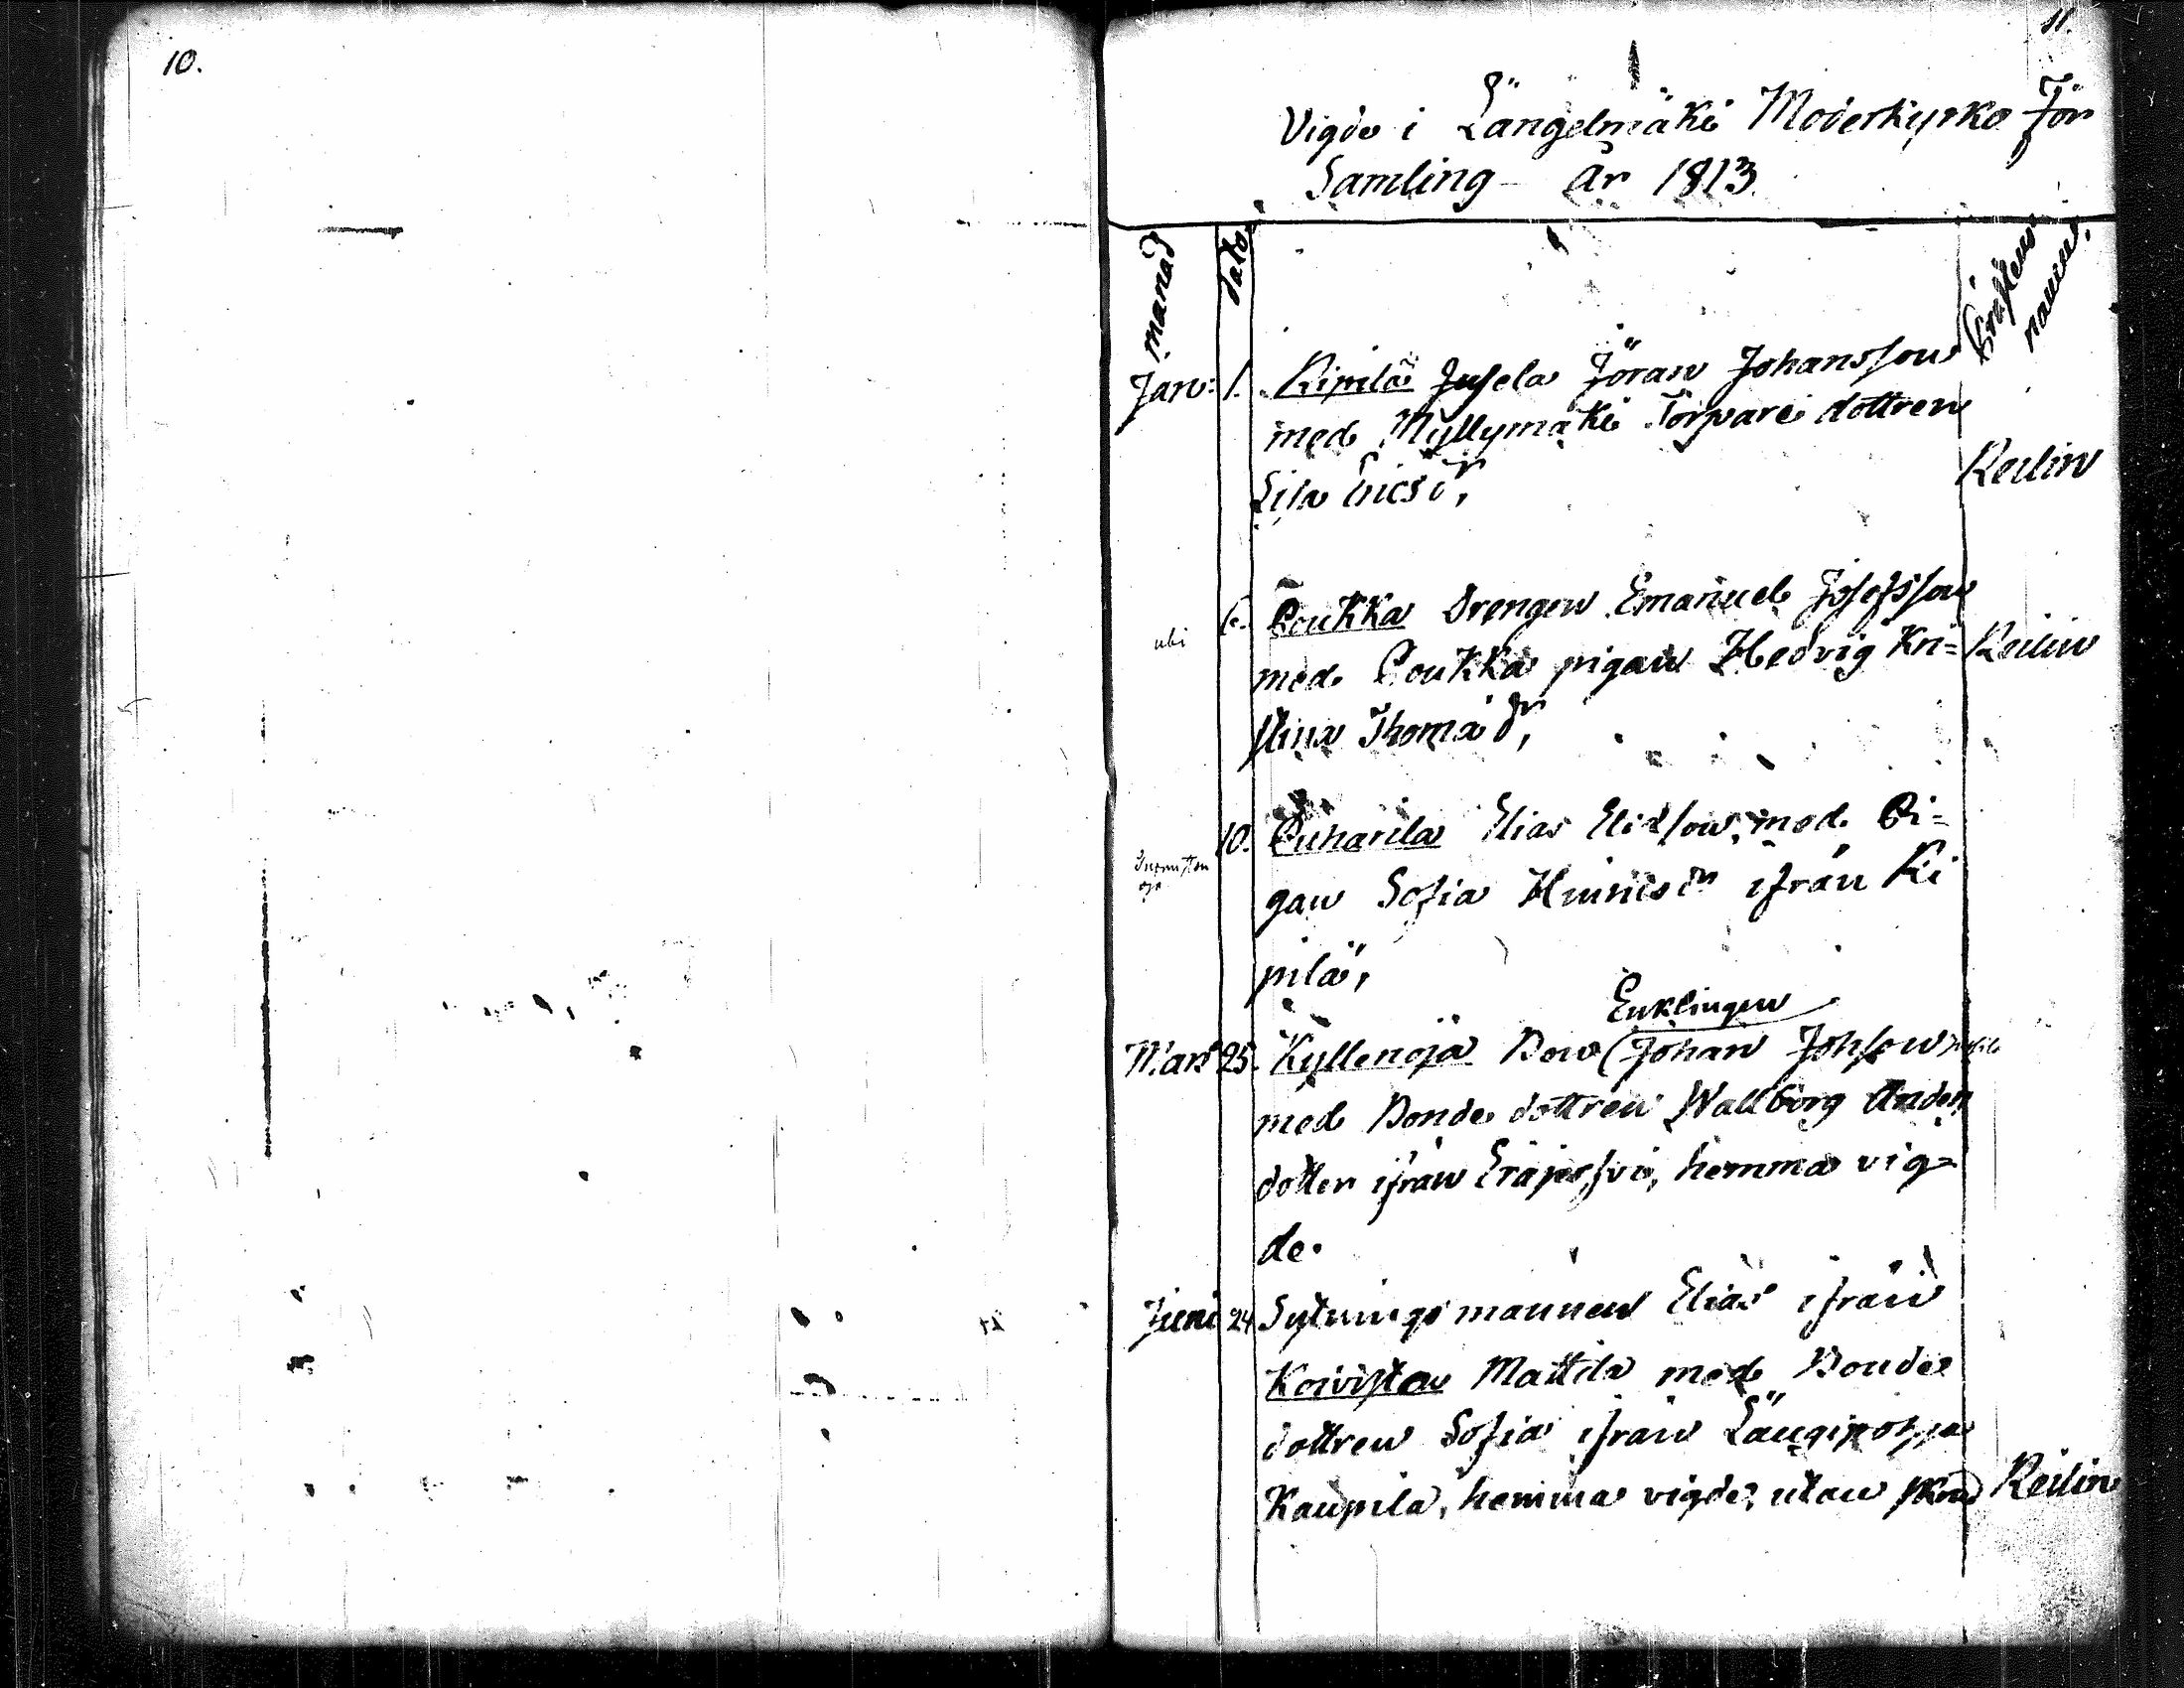 10.
11.
Vigde i Längelmäki Moderkyrko För
Samling – År 1813.
månad
dato
Prästens
namn.
Jan: 1. Ripilä Jusela Jöran Johansson
med Myllymäki Torpare dottren
Lisa Ericsdr,
Reilin
6. Poukka Drengen Emanuel Josefsson
med Poukka pigan Hedvig Kri=
stina Thomädr,
Reilin
10. Puharila Elias Eliasson med Pi=
gan Sofia Hinricsdr ifrån Ri
pilä,
Enklingen
Mars 25. Kyllenoja Bon (Johan Johsson
med Bonde dottren Wallborg Anders
dotter ifrån Eräjerfvi, hemma vig=
de.
Juni 24 Sytningsmannen Elias ifrån
Koiviston Mattila med Bonde
dottren Sofia ifrån Längipohja
Kaupila, hemma vigde, utan
Reilin